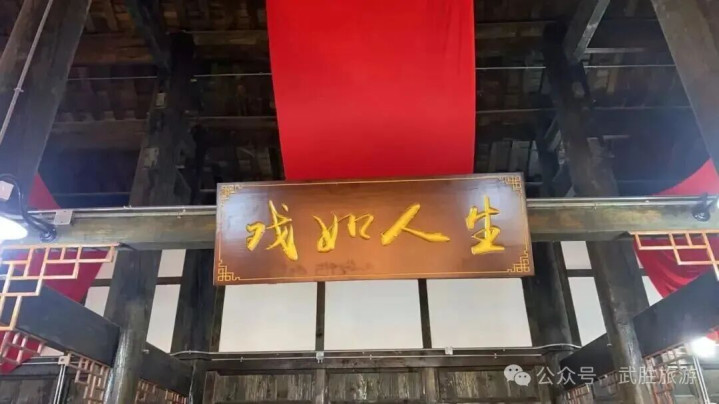 戏如人生
公众号 · 武胜旅游